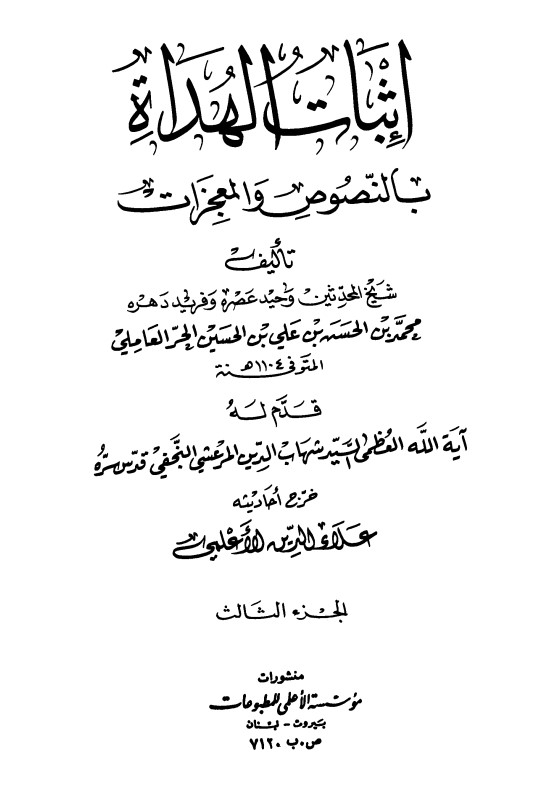 إثبات الهداة
بالنصوص والمعجزات
تأليف
شيخ المحدثين وحيد عصره وفريد دهره
محمد بن الحسن بن علي بن الحسين الحر العاملي
المتوفى سنة ١١٠٤هـ
قدم له
آية الله العظمى السيد شهاب الدين المرعشي النجفي قدس سره
خرج أحاديثه
علاء الدين الأعلمي
الجزء الثالث
منشورات
مؤسسة الأعلمي للمطبوعات
بيروت - لبنان
ص.ب ٧١٢٠